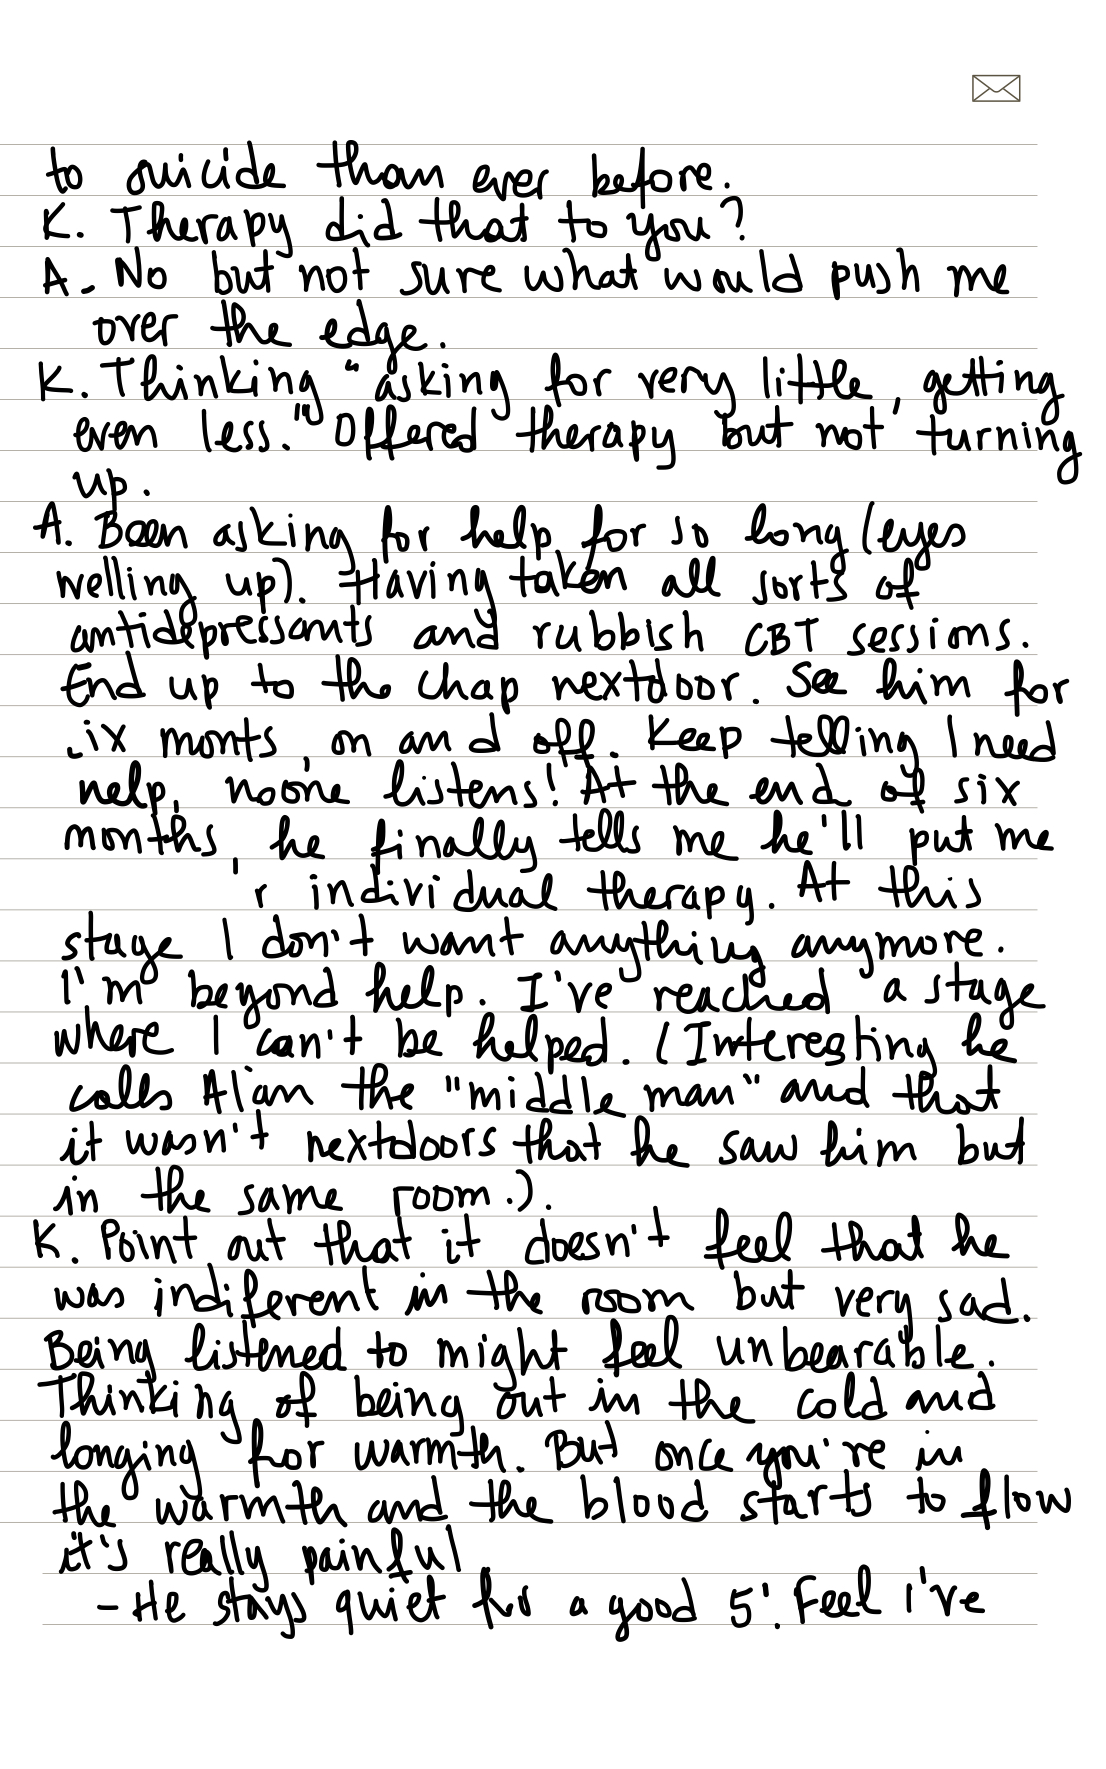 to suicide than ever before.
K. Therapy did that to you?
A. No but not sure what would push me
over the edge.
K. Thinking "asking for very little, getting
even less." Offered therapy but not turning
up.
A. Been asking for help for so long (eyes
welling up). Having taken all sorts of
antidepressants and rubbish CBT sessions.
End up to the chap nextdoor. See him for
six monts, on and off. Keep telling I need
help, noone listens! At the end of six
months, he finally tells me he'll put me
individual therapy. At this
stage I don't want anything anymore.
I'm beyond help. I've reached a stage
where I can't be helped. (Interesting he
calls Alan the "middle man" and that
it wasn't nextdoors that he saw him but
in the same room.).
K. Point out that it doesn't feel that he
was indiferent in the room but very sad.
Being listened to might feel unbearable.
Thinking of being out in the cold and
longing for warmth. But once you're in
the warmth and the blood starts to flow
it's really painful
- He stays quiet for a good 5'. Feel I've